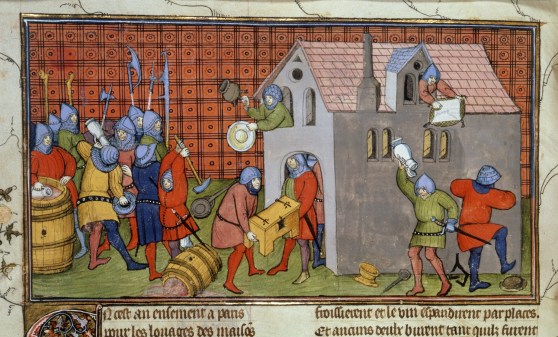 En cest an ensement a paris
pour les louages des maisōs
froissierent et le vin espandirent par places.
Et aucuns deulz burent tant quilz furent